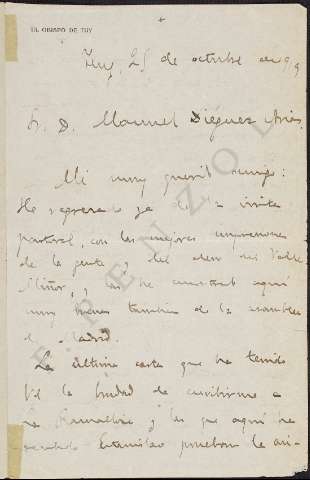 EL OBISPO DE TUY
Tuy, 25 de octubre de 99
Sr. D. Manuel Diéguez Arias
Mi muy querido amigo:
He regresado ya de la visita
pastoral, con las mejores impresiones
de la gente y del clero del Valle
Miñor, y las he encontrado aquí
muy buenas también de la asamblea
de Madrid.
La última carta que ha tenido
Vd la bondad de escribirme a
La Ramallosa y las que aquí ha
Estanislao prueban la